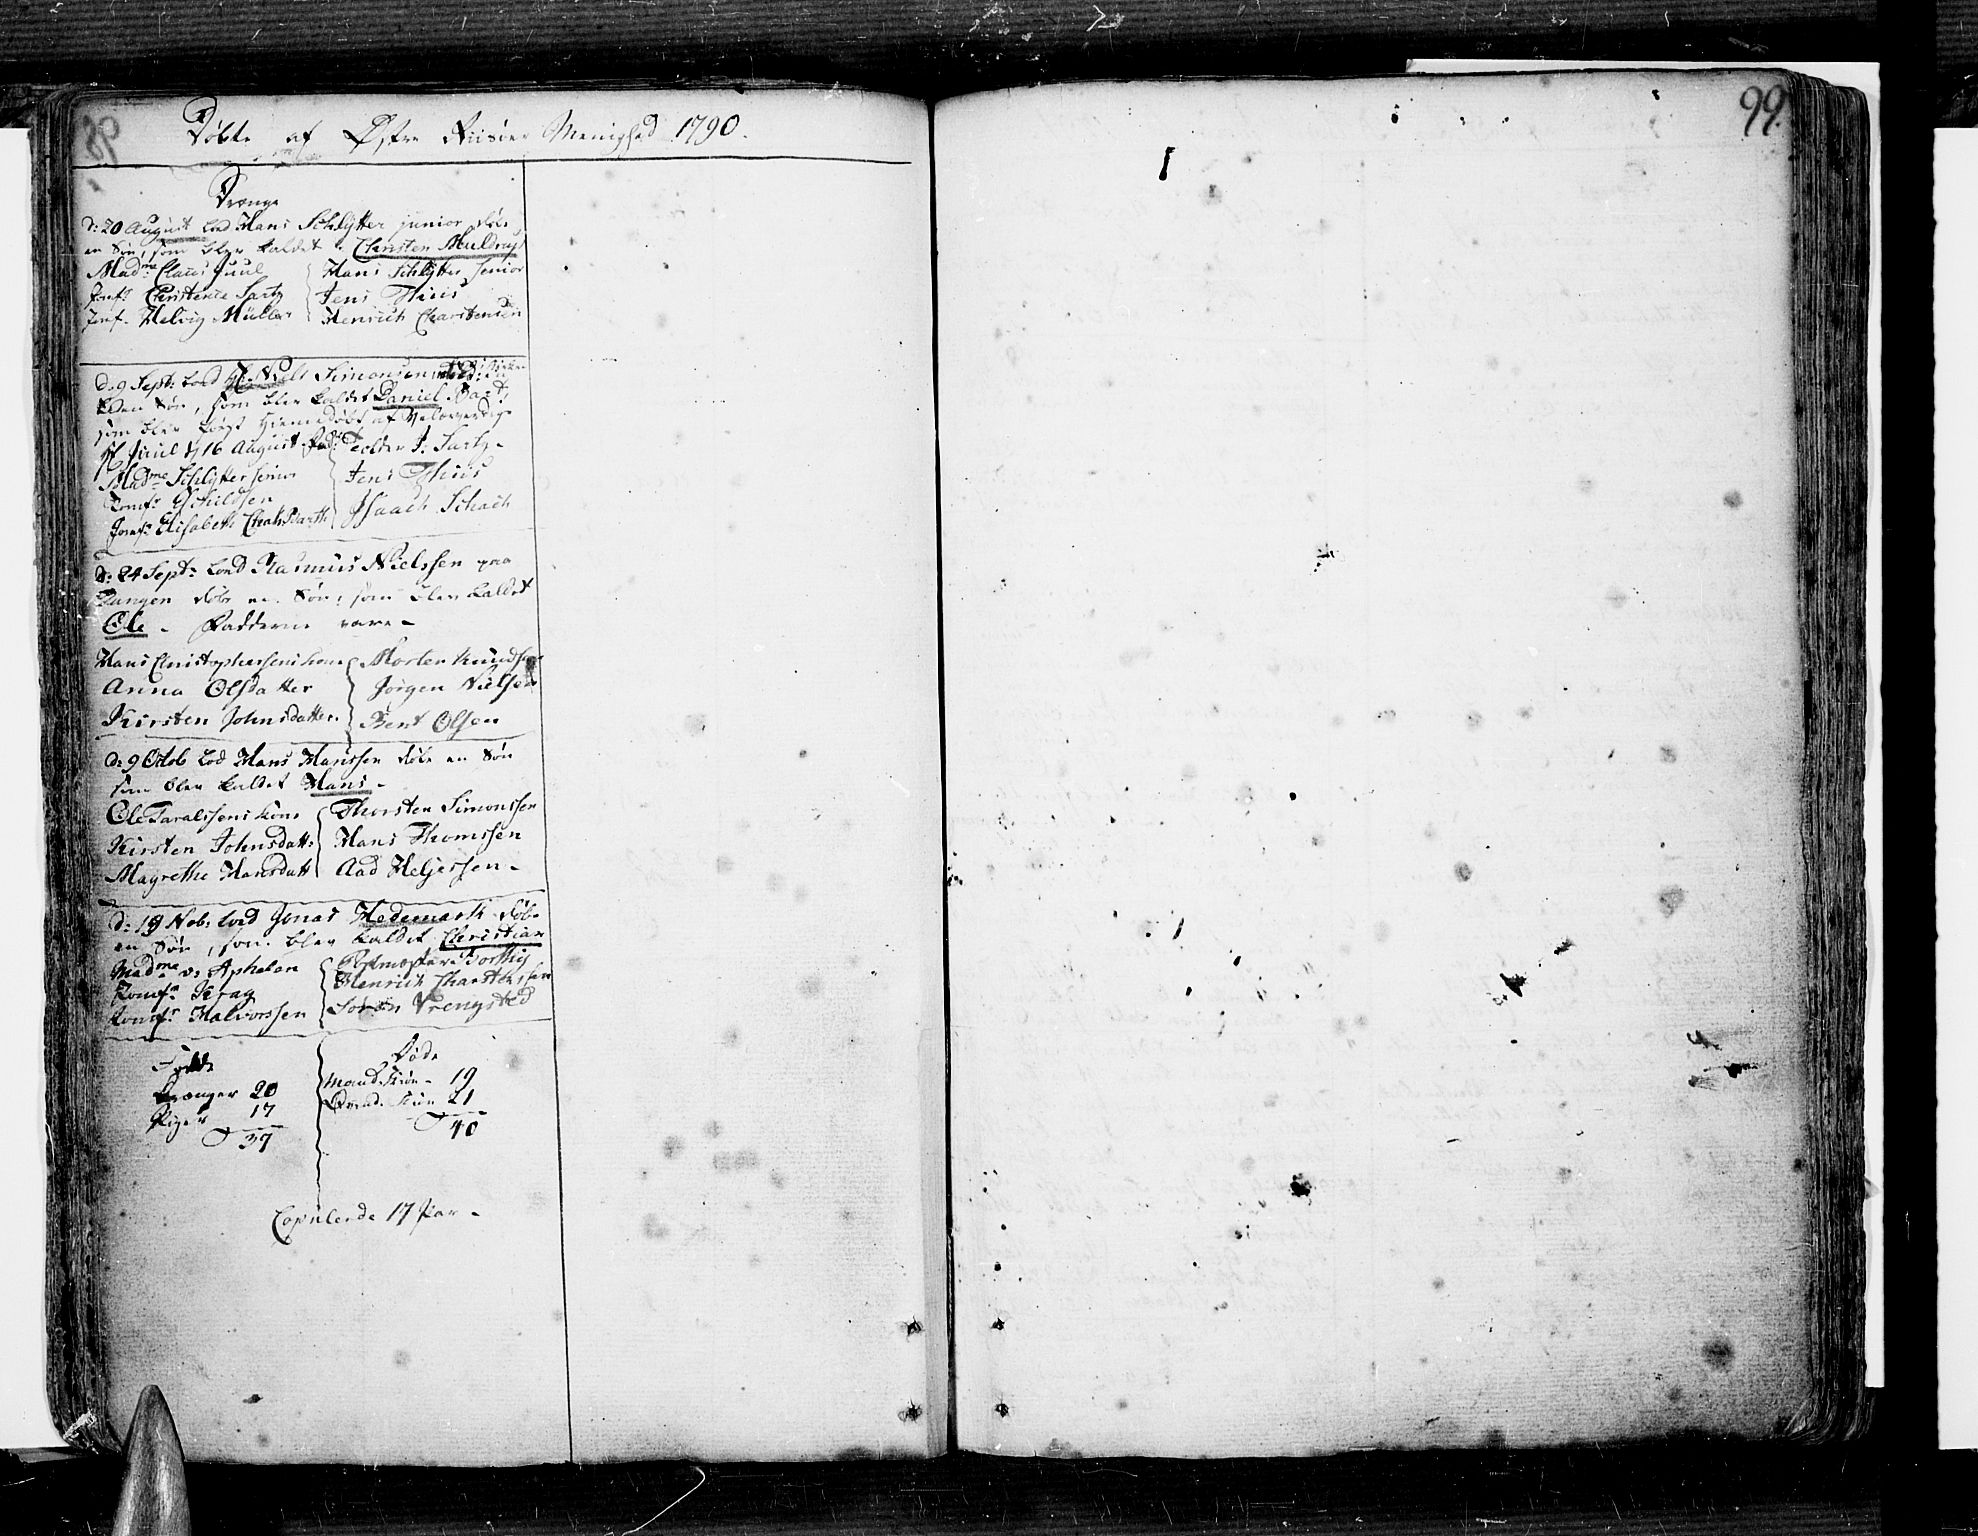 Døbte af Østre Riisøer Menighed 1790.
99.
Drænge
d: 20 August lod Hans Schlytter junior døbe
en Søn, som blev kaldet Christen Muldrup
Madme Claus Juul
Jomfr Christence Sartz
Jomf. Helvig Müller
Hans Schlytter senior
Jens Thiis
Henrich Charstensen
d: 9 Sept: lod Niels Simonsen
en Søn, som blev kaldet Daniel
som blev hiemmedøbt af Velærværdige
Hr Juul d 16 August
Madme Schlytter senior
Jomfr
Jomfr Elisabeth
Tolder J: Sartz
Jens Thiis
Isaach Schach
d: 24 Sept: lod Rasmus Nielssen paa
Tangen døbe en Søn, som blev kaldet
Ole - Fadderne vare -
Hans Christophersens kone
Anna Olsdatter
Kirsten Johnsdatter
Morten Knudsen
Jørgen Nielsen
Bent Olsen
d: 9 Octob lod Hans Hanssen døbe en Søn
som blev kaldet Hans -
Ole Taralssens kone
Kirsten Johnsdatt:
Magrethe Hansdatt
Thorsten Simonssen
Hans Thomssen
Aad Heljessen -
d: 19 Nob: lod Jonas Hedemark døbe
en Søn, som blev kaldet Christian
Madme v: Aphelen
Jomfr Krag
Jomfr Halvorssen
Postmester
Henrich Charstenssen
Søren Vrengsted
Fødde
Drænger 20
Piger 17
37
Døde
Mandkiøn - 19
Qvindkiøn 21
40
Copulerede 17 Par -